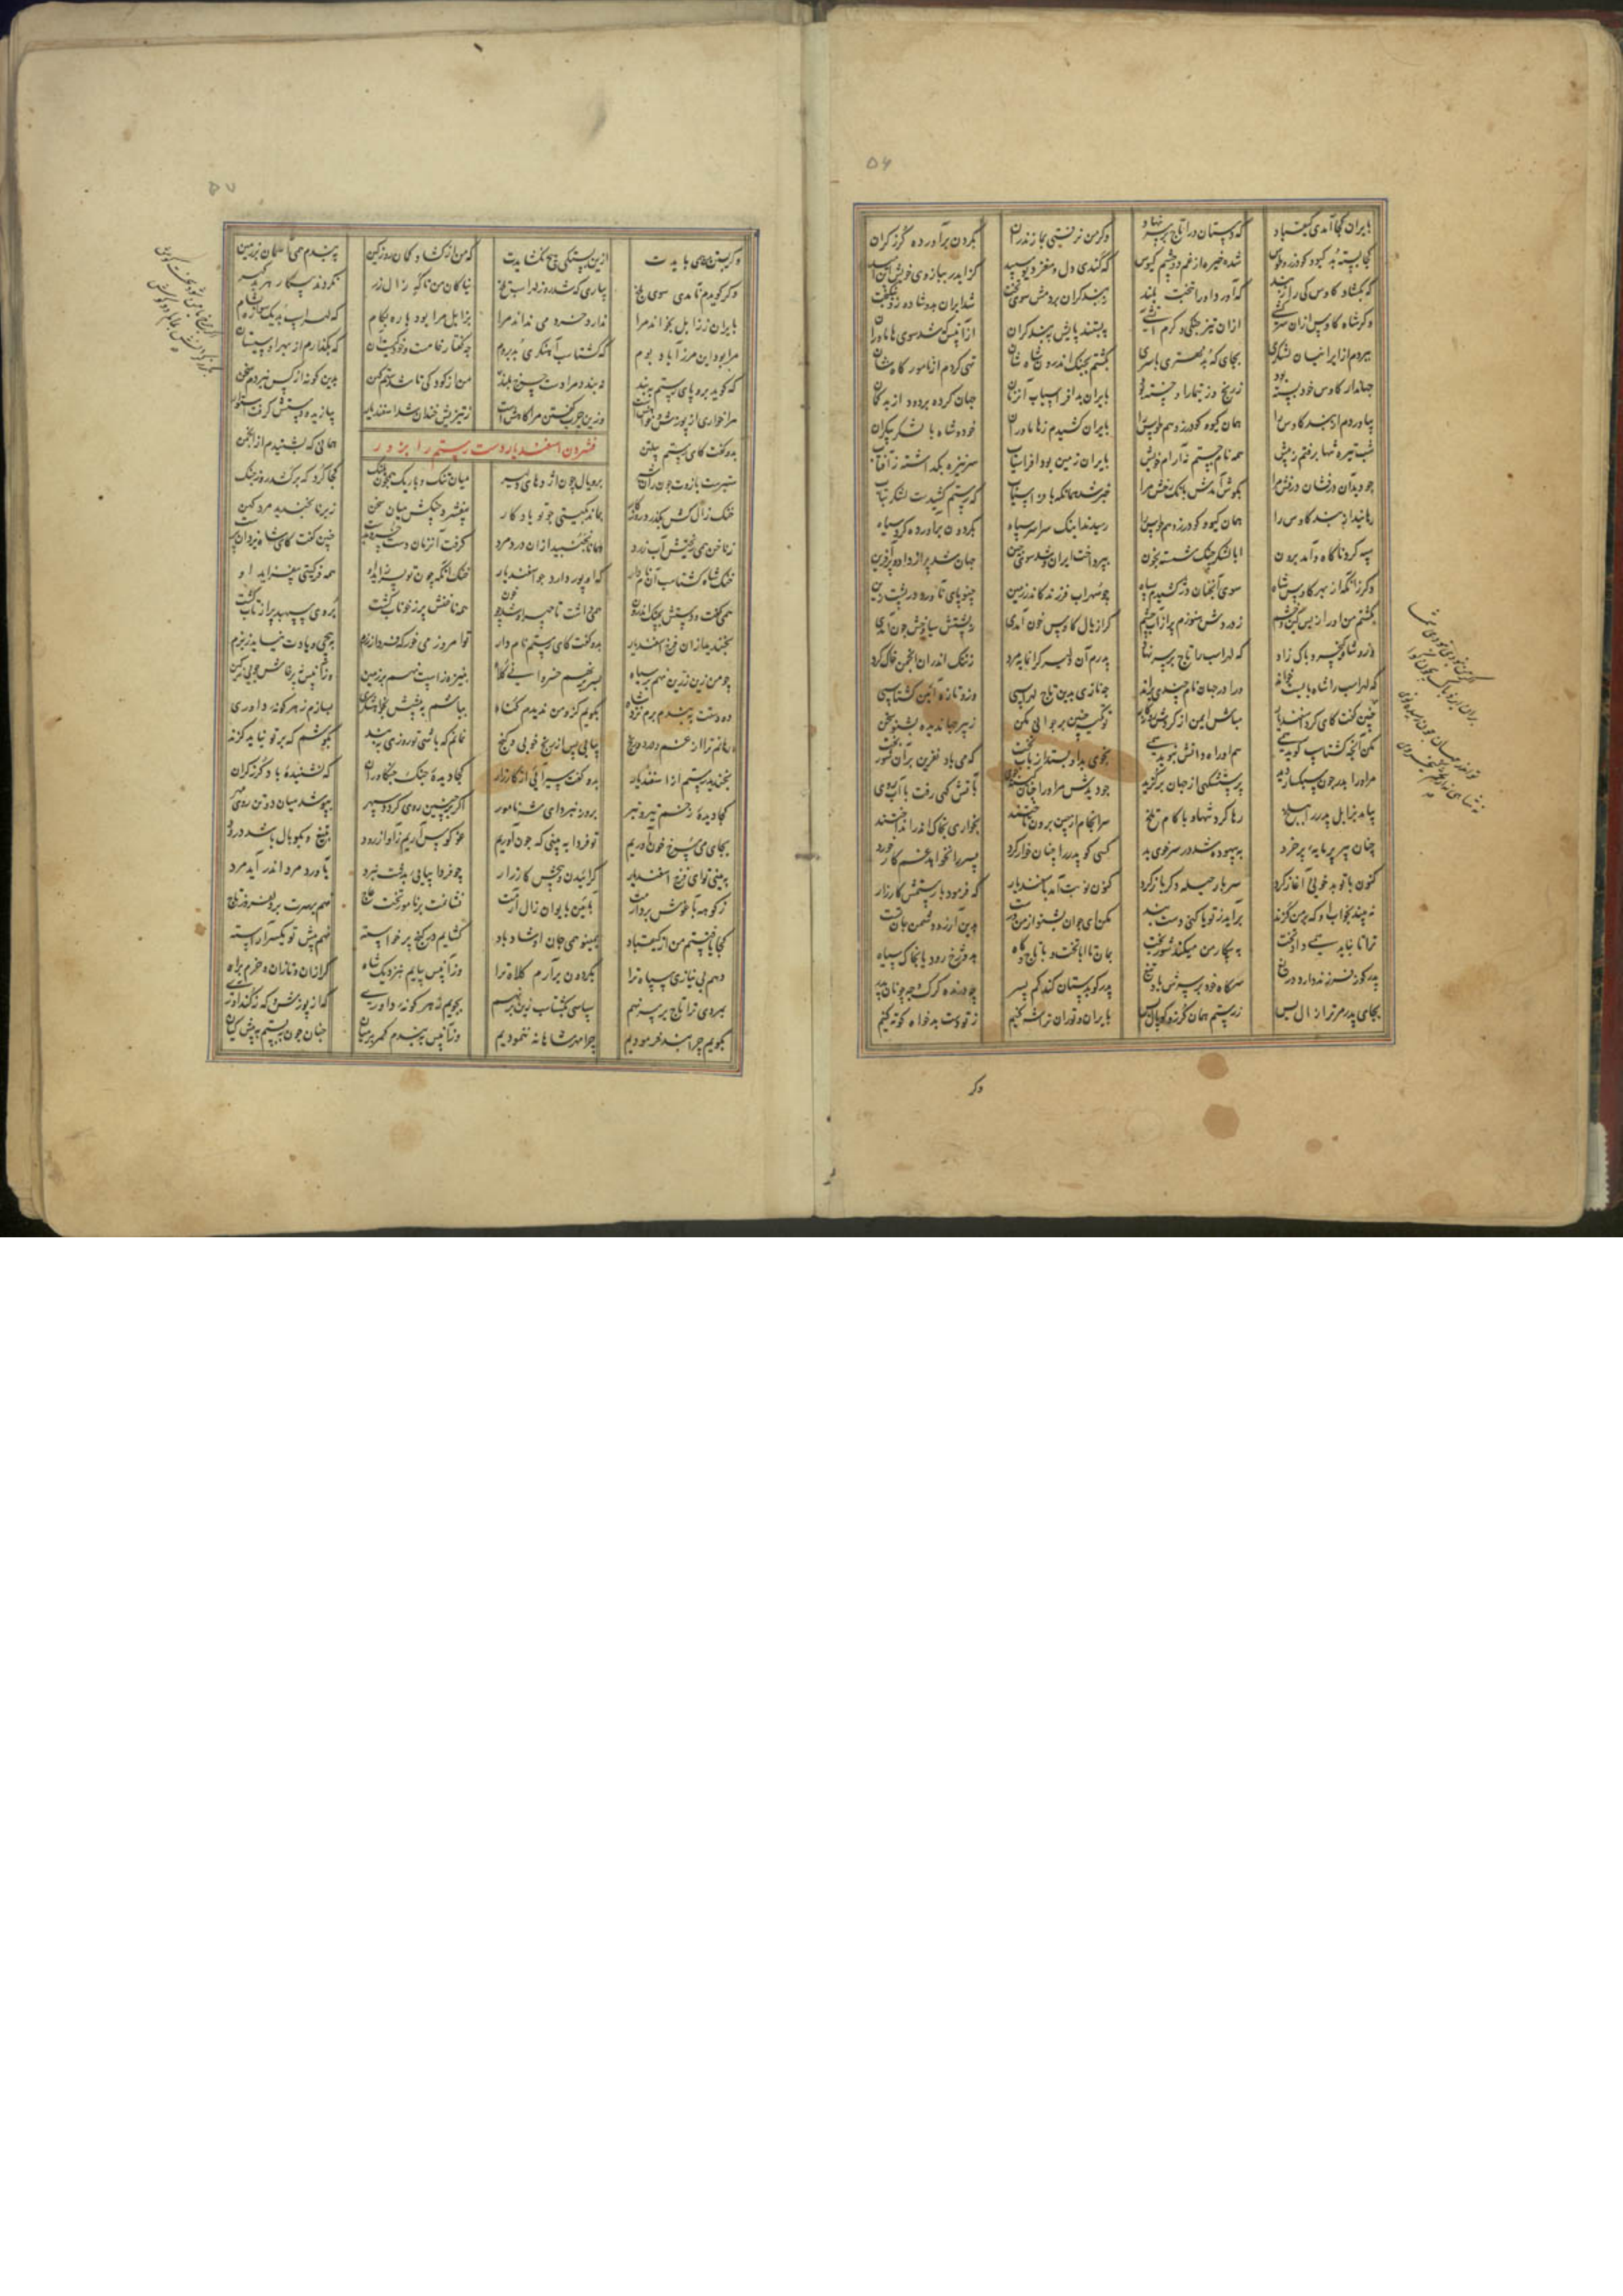 ۵۶
بایران کجا آمدی کیقباد که دستان ورا تاج بر سر نهاد وگر من نرفتی بمازندران بگردن برآورده گرز گران
کجا بسته بد گیو و گودرز و طوس شده خیره از غم دو چشم کیوس که کندی دل و مغز دیو سپید کرا بد ببازوی خویش این امید
که بگشاد کاوس کی را ز بند که آورد او را بتخت بلند ز بند گران بردمش سوی تخت شد ایران بدو شاد و او نیکبخت
وگر شاه کاوس ازان سرکشی ازان تیز جنگی و گرم آتشی ببستند پایش ببند گران از آن پس که شد سوی هاماوران
ببردم از ایرانیان لشکری بجای که بد مهتری یا سری بکشتم بجنگ اندرون شاه شان تهی کردم از نامور گاه شان
جهاندار کاوس خود بسته بود ز رنج و ز تیمارها خسته بود بایران بد افراسیاب آن زمان جهان کرده پر درد از بدگمان
بیاوردم از بند کاوس را همان گیو و گودرز و هم طوس را بایران کشیدم ز هاماوران خود و شاه با لشکر بیکران
شب تیره تنها برفتم ز پیش همه نام جستم نه آرام خویش بایران زمین بود افراسیاب سر نیزه بگذاشته ز آفتاب
چو دید آن درفشان درفش مرا بگوش آمدش بانگ رخش مرا خبر شد همانگه بافراسیاب که رستم کشیدست لشکر بتاب
رهانید از بند کاوس را همان گیو و گودرز و هم طوس را رسیدند اینک سراسر سپاه بگردون برآورده گرد سیاه
سپه کرد ناگاه و آمد برون ابا لشکر جنگ شسته بخون بپرداخت ایران و شد سوی چین جهان شد پر از داد و پر آفرین
وگر زانکه از بهر کاوس شاه سوی آنچنان دژ کشیدم سپاه چو سهراب فرزند کاندر زمین چنو پای نآورد در پشت زین
بکشتم من او را ز بس کین و خشم ز دردش هنوزم پر از آب چشم گر از یال کاوس خون آمدی ز پشتش سیاوش چون آمدی
وزو شاه کیخسرو پاک زاد که لهراسب را تاج بر سر نهاد پدرم آن دلیر گرانمایه مرد ز ننگ اندران انجمن خاک خورد
که لهراسب را شاه بایست خواند ورا در جهان نام چندین براند چه نازی بدین تاج لهراسپی وزو تازه آیین گشتاسپی
چنین گفت کای گرد اسفندیار مباش ایمن از گردش روزگار تو گیتی چنین بر جوانی مکن ز پیر جهاندیده بشنو سخن
مکن آنچه گشتاسپ گوید همی هم او راه دانش نجوید همی بجوی بد او بستد از باب تخت که می باد نفرین بران شوربخت
مر او را پدر چون سبکسار دید پرستشگهی از جهان برگزید چو دیدش مر او را چنان باتش گهی رفت با آب روی
بیامد بزابل پدر را ببلخ رها کرد تنها و با کام تلخ سرانجام ازین برون تاختند بخواری بخاک اندر انداختند
چنان پیر پرمایه پرخرد به بیهوده شد در سر خوی بد کسی کو پدر را چنان خوار کرد پسر را نخواهد غم کار خورد
کنون با تو بدخویی آغاز کرد سر بار حیله دگر باز کرد کنون نوبت آمد باسفندیار که فرمود با رستمش کارزار
نه بیند بخواب او که بر من گزند برآید ز تو یا کنی دست بند مکن ای جوان بشنو از من بدین آرزو دشمن جان تست
ترا تا نباید همی داد تخت به پیکار من میکند شوربخت بمان تا ابا تخت و با تاج و گاه بدوزخ رود با نجاک سیاه
پدر کو ز فرزند دارد دریغ سر گاه خود بر سرش باد تیغ پدر کو بدستان کند کم پسر چو درنده گرگ و چه چونان پدر
بجای پدر مر ترا زال بس ز رستم همان گرز و کوپال بس بایران و توران تراشه کنیم ز تو دست بدخواه کوته کنیم
وگر
۵۷
وگر بستن من همی بایدت ازین بستگی هیچ نگشایدت که من از گشاد و کمان روز کین ببندم همی آسمان بر زمین
وگر گویدم تا بدی سوی بلخ بیاری که شد روز لهراسپ تلخ نیاکان من تا گه زال زر نکردند پیکار هر بد گهر
بایران ز زابل بخواند مرا ندارد خرد می نداند مرا بزابل مرا بود باره بکام که لهراسب بد یک
مرا بود این مرز آباد بوم که گشتاسپ آهنگری بد بروم چه گفتار خامت که بگذارم از بهر او سیستان
که گوید برو پای رستم ببند نبندد مرا دست چرخ بلند من از کودکی تا شدستم کهن بدین گونه از کس نبردم سخن
مرا خواری از پوزش و خواهش است وزین چرب گفتن مرا کاهش است ز تیزیش خندان شد اسفندیار بیازید و دستش گرفت استوار
فشردن اسفندیار دست رستم را بزور
بدو گفت کای رستم پیلتن همانی که بشنیدم از انجمن
ستبرست بازوت چون ران شیر بر و یال چون اژدهای دلیر میان تنگ و باریک همچون پلنگ کجا گرد که بر گشد روز جنگ
خنک زال کش بگذرد روزگار بماند بگیتی چو تو یادگار بیفشرد چنگش میان سخن ز برنا بخندید مرد کهن
ز ناخن همی ریختش آب زرد همانا نجنبید ازان درد مرد گرفت آن زمان دست چنین گفت کای شاه یزدان پرست
خنک شاه گشتاسپ آن نامدار که او پور دارد چو اسفندیار خنک آنکه چون تو پسر زاید او همه فر گیتی بیفزاید او
همی گفت و دستش بچنگ اندرون همی داشت تا چهر او شد چو خون همه ناخنش پر ز خوناب گشت بروی سپهبد پر از تاب گشت
بخندید ازان فرخ اسفندیار بدو گفت کای رستم نامدار تو امروز می خور که فردا برزم بپیچی و یادت نیاید ز بزم
چو من زین زرین نهم بر سپاه بسر بر نهم خسروانی کلاه بنیزه ز اسپت نهم بر زمین وزان پس نه پرخاش جویی نه کین
دو دستت ببندم برم نزد شاه بگویم کزو من ندیدم گناه بباشم به پیشش بخواهشگری بسازم ز هر گونه داوری
رهانم ترا از غم و درد و رنج بیابی پس از رنج خوبی و گنج نمانم که باشی تو روزی ببند بکوشم که بر تو نیاید گزند
بخندید رستم از اسفندیار بدو گفت سیر آیی از کارزار کجا دیده جنگ جنگاوران که نشنیده باد گرز گران
کجا دیده زخم تیر و تبر بروز نبرد ای شه نامور اگر چنین روی گردد سپهر بپوشد میان دو تن روی مهر
بجای می سرخ خون آوریم تو فردا به بینی که چون آوریم غو کوس آریم ز آواز رود بتیغ و بکوبال باشد درود
به بینی تو ای فرخ اسفندیار گراییدن و جنبش کارزار چو فردا بیایی بدشت نبرد بآورد مرد اندر آید بمرد
ز کوهه بآغوش بردارمت بآیین بایوان زال آرمت نشانمت بر نامور تخت عاج نهم بر سرت بر دلفروز تاج
کجا یافتستم من از کیقباد بمینو همی جان او شاد باد گشایم در گنج پر خواسته نهم پیش تو یکسر آراسته
دهم بی نیازی سپاه ترا بگردون برآرم کلاه ترا وز آن پس بیایم نزدیک شاه گرازان و تازان و خرم براه
بمردی ترا تاج بر سر نهم سپاسی بگشتاسپ زین بر نهم بجویم ز هر گونه داوری که از پوزش
بگویم چرا بند فرمودیم چرا مهر شاهانه ننمودیم وز آن پس ببندم کمر بر میان چنان چون ببستم به پیش کیان